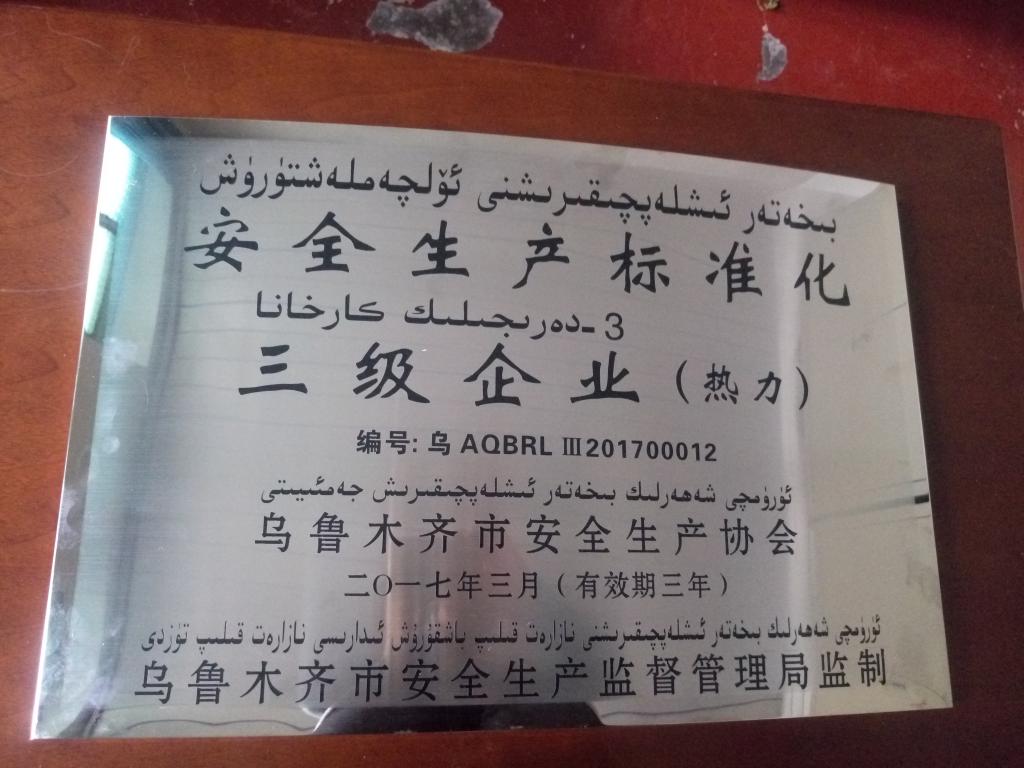 بىخەتەر ئىشلەپچىقىرىشنى ئۆلچەملەشتۈرۈش
安全生产标准化
3-دەرىجىلىك كارخانا
三级企业（热力）
编号: 乌 AQBRL Ⅲ201700012
ئۈرۈمچى شەھەرلىك بىخەتەر ئىشلەپچىقىرىش جەمئىيىتى
乌鲁木齐市安全生产协会
二〇一七年三月（有效期三年）
ئۈرۈمچى شەھەرلىك بىخەتەر ئىشلەپچىقىرىشنى نازارەت قىلىپ باشقۇرۇش ئىدارىسى نازارەت قىلىپ تۈزدى
乌鲁木齐市安全生产监督管理局监制